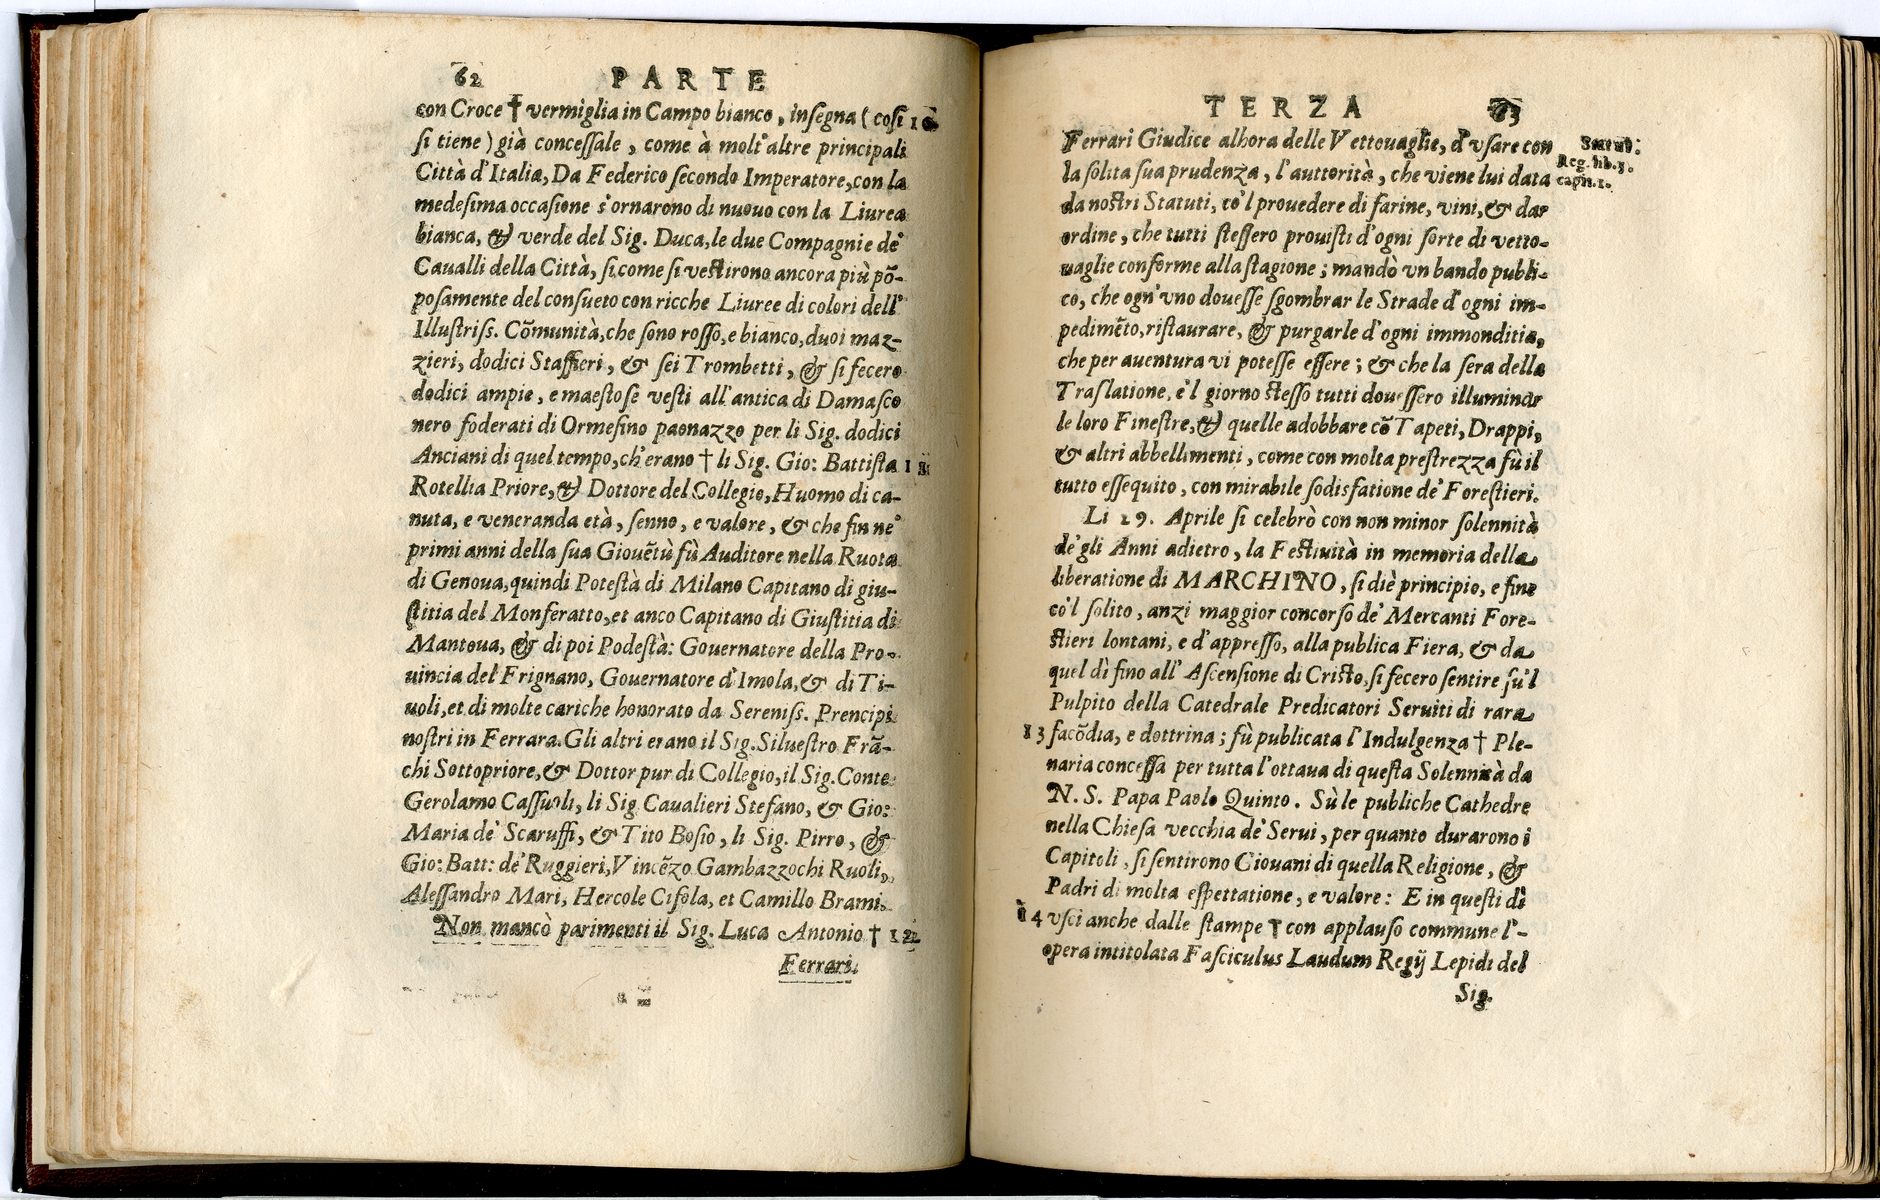 62 PARTE
con Croce † vermiglia in Campo bianco, inſegna (coſi 10
ſi tiene) già conceſſale, come à molt'altre principali
Città d'Italia, Da Federico ſecondo Imperatore, con la
medeſima occaſione s'ornarono di nuouo con la Liurea
bianca, & verde del Sig. Duca, le due Compagnie de'
Caualli della Città, ſi come ſi veſtirono ancora più põ-
poſamente del conſueto con ricche Liuree di colori dell'
Illuſtriſs. Cõmunità, che ſono roſſo, e bianco, duoi maz-
zieri, dodici Staffieri, & ſei Trombetti, & ſi fecero
dodici ampie, e maeſtoſe veſti all'antica di Damaſco
nero foderati di Ormeſino paonazzo per li Sig. dodici
Anciani di quel tempo, ch'erano † li Sig. Gio: Battiſta 11
Rotellia Priore, & Dottore del Collegio, Huomo di ca-
nuta, e veneranda età, ſenno, e valore, & che fin ne'
primi anni della ſua Giouẽtù fù Auditore nella Ruota
di Genoua, quindi Poteſtà di Milano Capitano di giu-
ſtitia del Monferatto, et anco Capitano di Giuſtitia di
Mantoua, & di poi Podeſtà: Gouernatore della Pro-
uincia del Frignano, Gouernatore d'Imola, & di Ti-
uoli, et di molte cariche honorato da Sereniſs. Prencipi
noſtri in Ferrara. Gli altri erano il Sig. Silueſtro Frã-
chi Sottopriore, & Dottor pur di Collegio, il Sig. Conte
Gerolamo Caſſuoli, li Sig. Caualieri Stefano, & Gio:
Maria de' Scaruffi, & Tito Boſio, li Sig. Pirro, &
Gio: Batt: de' Ruggieri, Vincẽzo Gambazzochi Ruoli,
Aleſſandro Mari, Hercole Ciſola, et Camillo Brami.
Non mancò parimenti il Sig. Luca Antonio † 12
Ferrari
TERZA 63
Ferrari Giudice alhora delle Vettouaglie, d'vſare con
la ſolita ſua prudenza, l'auttorità, che viene lui data
da noſtri Statuti, co'l prouedere di farine, vini, & dar
ordine, che tutti ſteſſero prouiſti d'ogni ſorte di vetto-
uaglie conforme alla ſtagione; mandò vn bando publi-
co, che ogn'vno doueſſe ſgombrar le Strade d'ogni im-
pedimẽto, riſtaurare, & purgarle d'ogni immonditia,
che per auentura vi poteſſe eſſere; & che la ſera della
Traſlatione, e'l giorno ſteſſo tutti doueſſero illuminar
le loro Fineſtre, & quelle adobbare cõ Tapeti, Drappi,
& altri abbellimenti, come con molta preſtrezza fù il
tutto eſſequito, con mirabile ſodisfatione de' Foreſtieri.
Li 29. Aprile ſi celebrò con non minor ſolennità
de'gli Anni adietro, la Feſtiuità in memoria della
liberatione di MARCHINO, ſi diè principio, e fine
co'l ſolito, anzi maggior concorſo de' Mercanti Fore-
ſtieri lontani, e d'appreſſo, alla publica Fiera, & da
quel dì fino all'Aſcenſione di Criſto, ſi fecero ſentire ſu'l
Pulpito della Catedrale Predicatori Seruiti di rara
13 facõdia, e dottrina; fù publicata l'Indulgenza † Ple-
naria conceſſa per tutta l'ottaua di queſta Solennità da
N. S. Papa Paolo Quinto. Sù le publiche Cathedre
nella Chieſa vecchia de' Serui, per quanto durarono i
Capitoli, ſi ſentirono Giouani di quella Religione, &
Padri di molta eſpettatione, e valore: E in queſti dì
14 vſcì anche dalle ſtampe † con applauſo commune l'-
opera intitolata Faſciculus Laudum Regij Lepidi del
Sig.
Statut:
Reg. lib. 3.